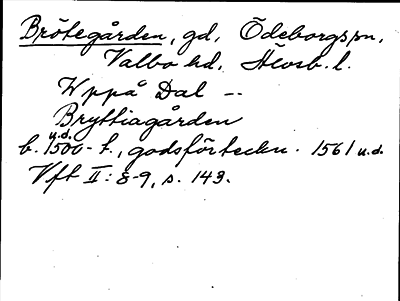 Brötegården, gd, Ödeborgs sn,
Valbo hd, Älvsb. l.
Uppå Dal --
Bryttiagården
u.d.
b. 1500-t., godsförteckn. 1561 u.d.
Vft II: 8-9, s. 143.